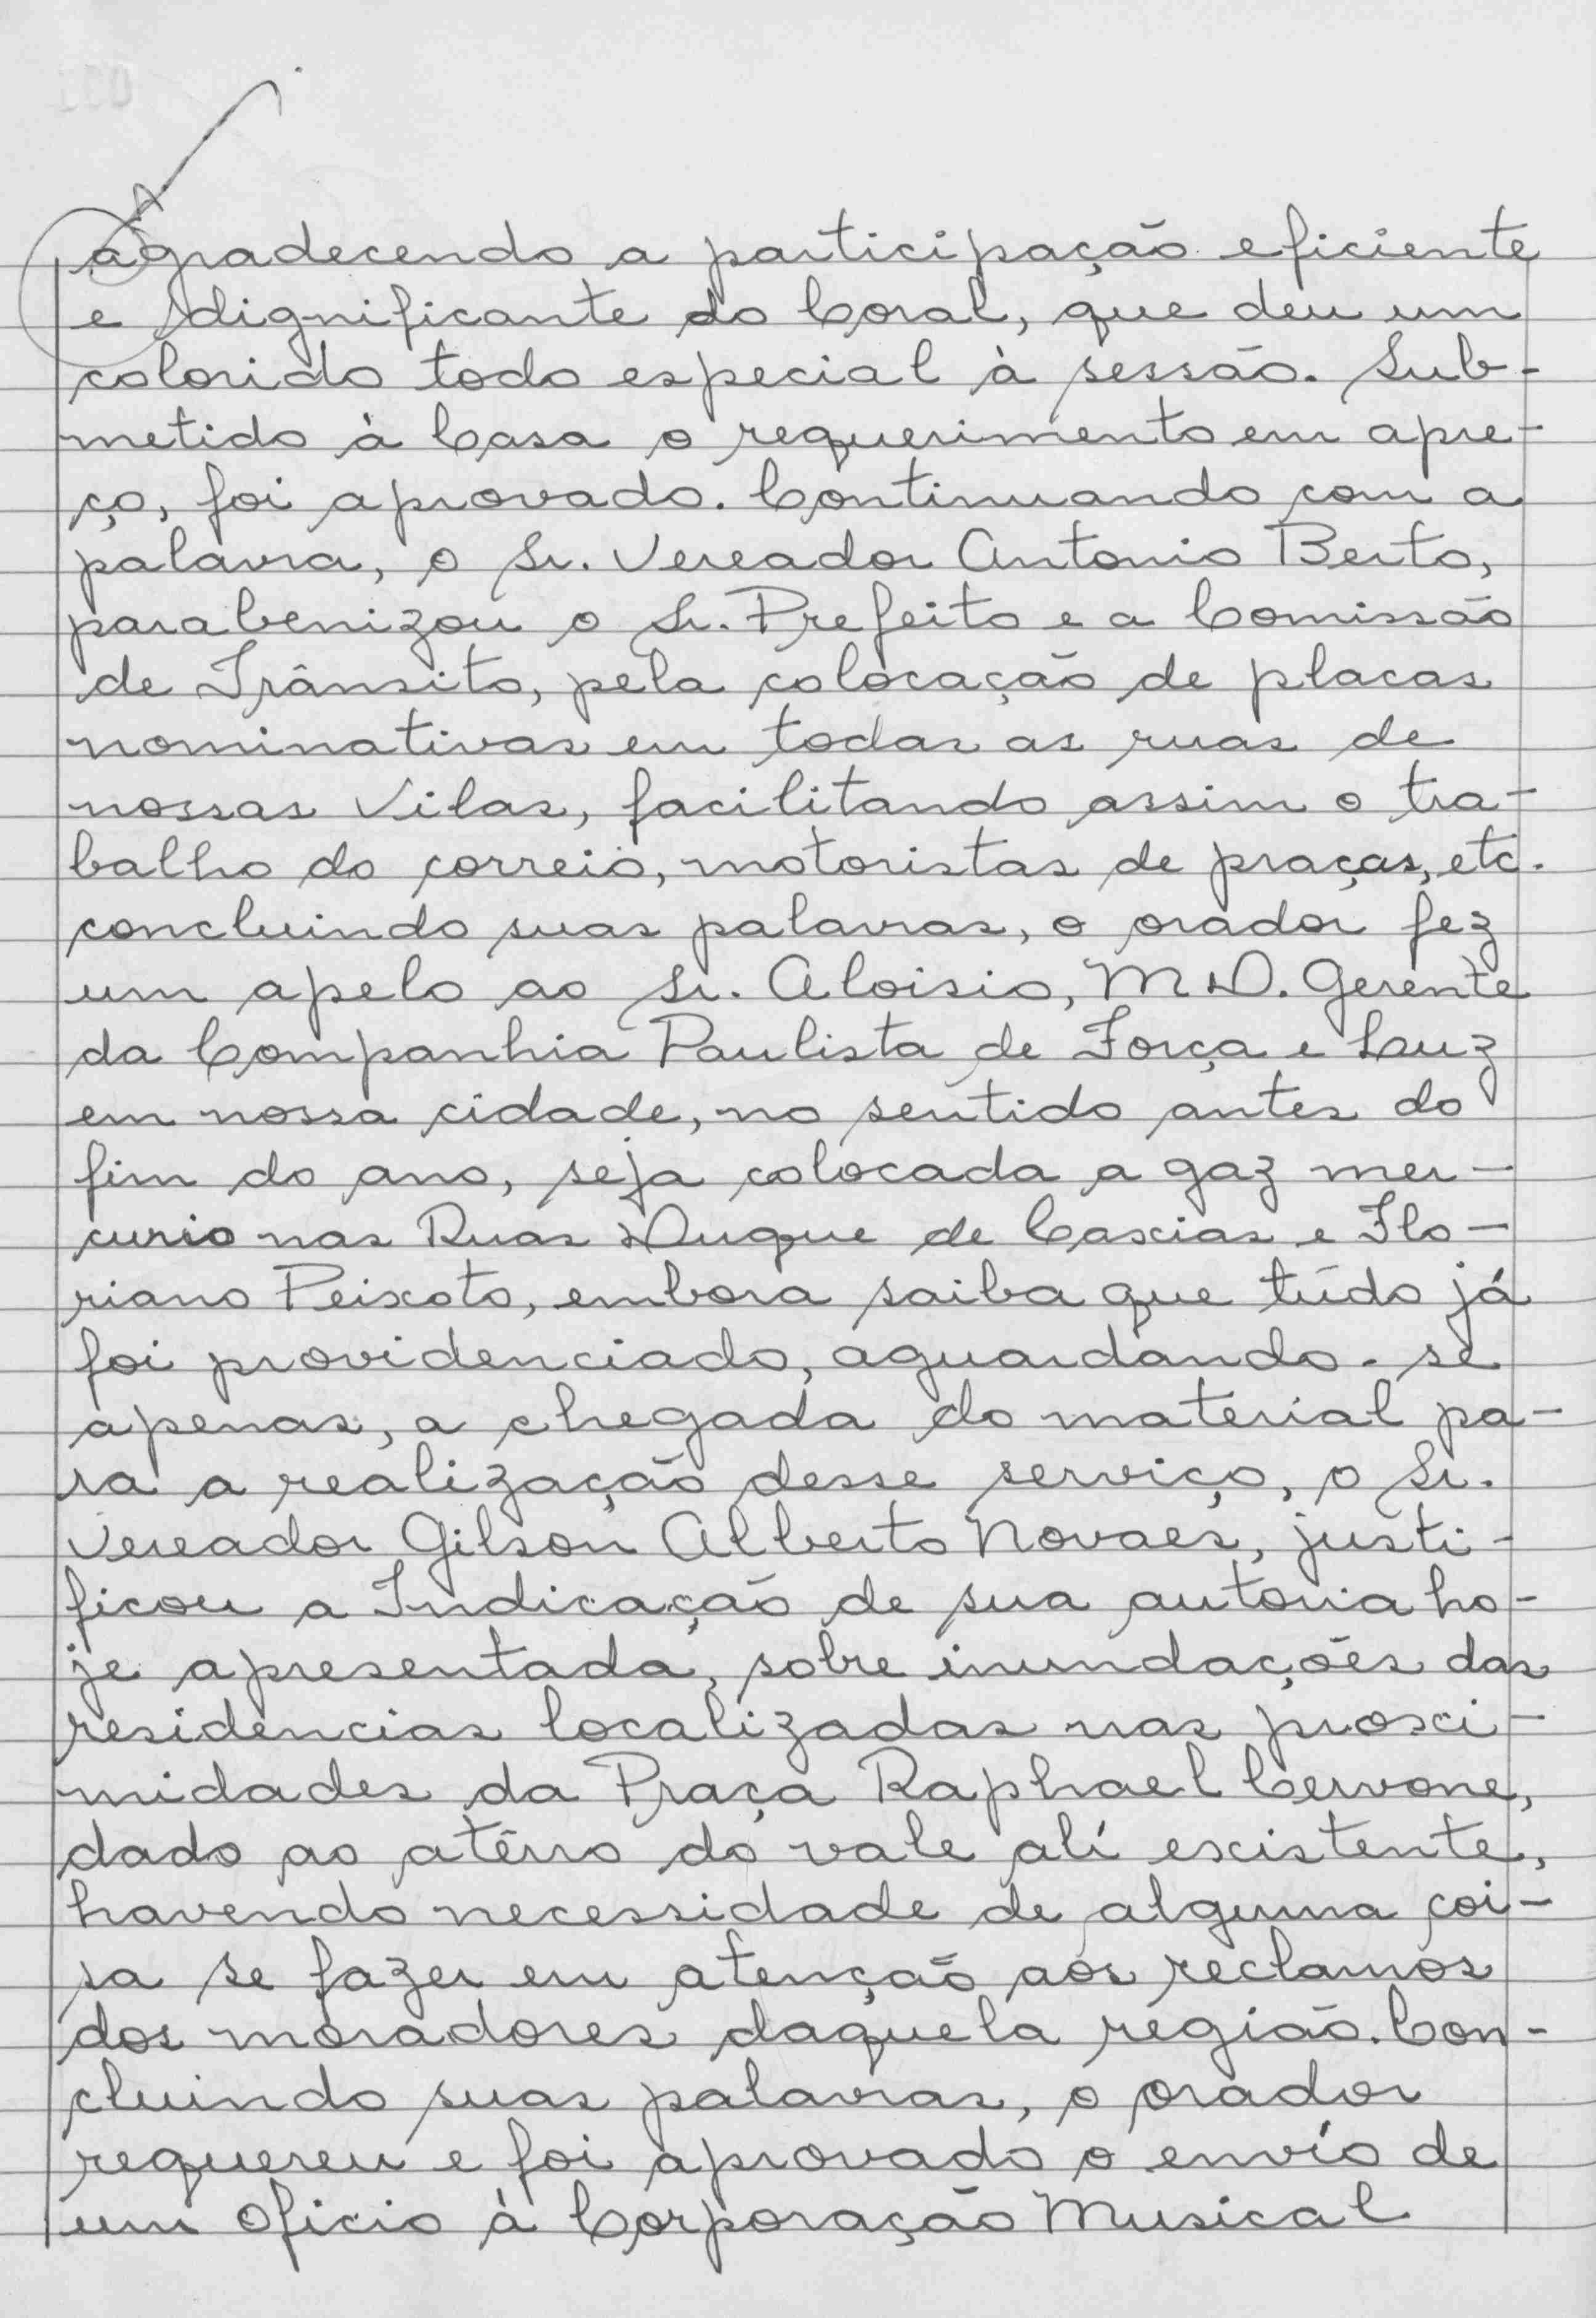 agradecendo a participação eficiente
e dignificante do Coral, que deu um
colorido todo especial à sessão. Sub-
metido à Casa o requerimento em apre-
ço, foi aprovado. Continuando com a
palavra, o Sr. Vereador Antonio Berto,
parabenizou o Sr. Prefeito e a Comissão
de Trânsito, pela colocação de placas
nominativas em todas as ruas de
nossas Vilas, facilitando assim o tra-
balho do correio, motoristas de praças, etc.
concluindo suas palavras, o orador fez
um apelo ao Sr. Aloisio, M.D. Gerente
da Companhia Paulista de Força e Luz
em nossa cidade, no sentido antes do
fim do ano, seja colocada a gaz mer-
curio nas Ruas Duque de Caxias e Flo-
riano Peixoto, embora saiba que túdo já
foi providenciado, aguardando-se
apenas, a chegada do material pa-
ra a realização desse serviço, o Sr.
Vereador Gilson Alberto Novaes, justi-
ficou a Indicação de sua autoria ho-
je apresentada, sobre inundações das
residências localizadas nas proxi-
midades da Praça Raphael Cervone,
dado ao atêrro do vale alí existente,
havendo necessidade de alguma coi-
sa se fazer em atenção aos reclamos
dos moradores daquela região. Con-
cluindo suas palavras, o orador
requereu e foi aprovado o envío de
um Oficio à Corporação Musical